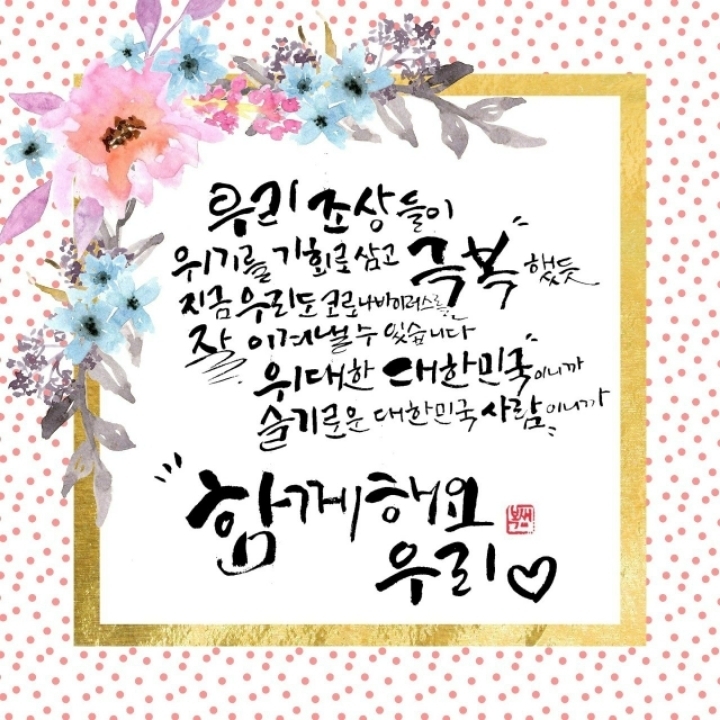 우리 조상들이
위기를 기회로 삼고 "극복" 했듯
지금 우리도 코로나바이러스를
잘 이겨낼 수 있습니다
위대한 대한민국"이니까
슬기로운 대한민국 사람"이니까
함께해요
우리♡